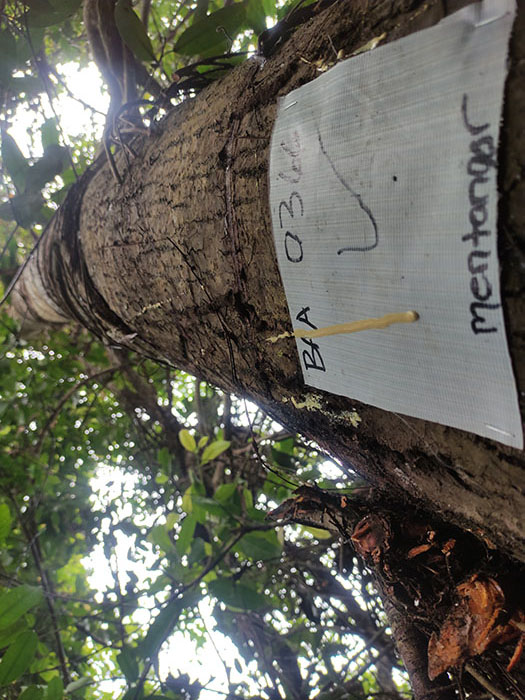 BAA 0366
mentangor